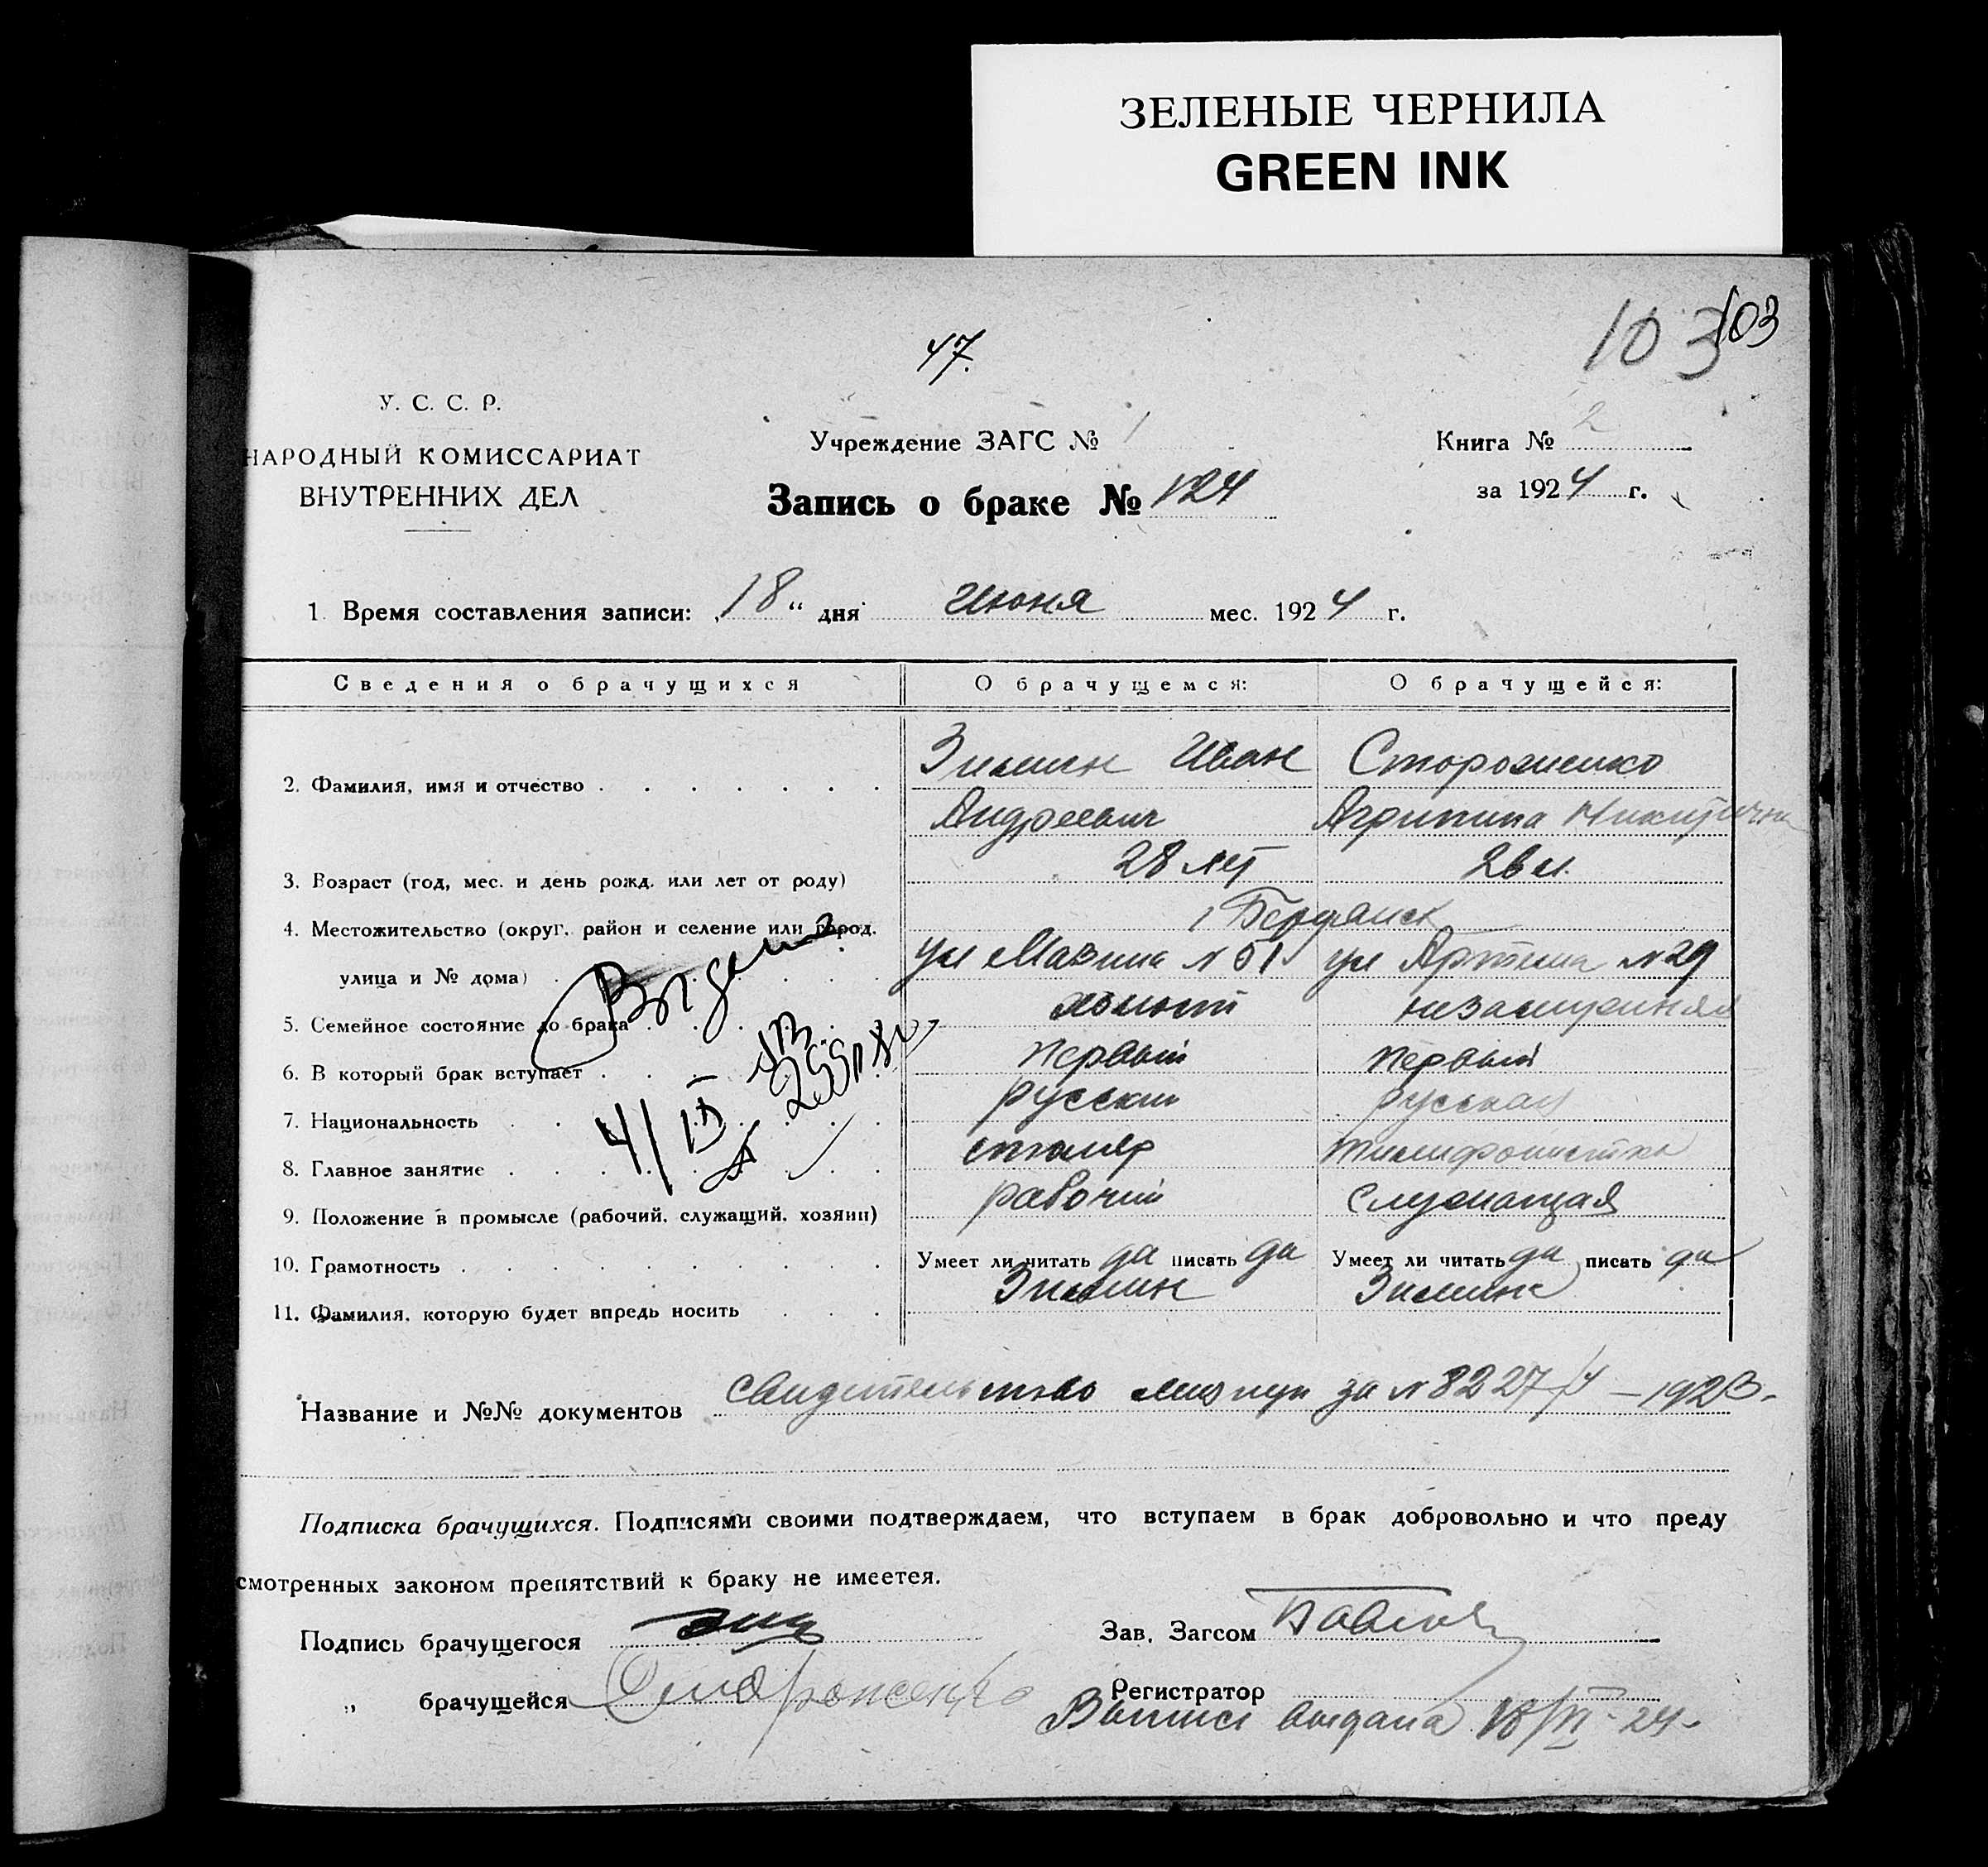 ЗЕЛЕНЫЕ ЧЕРНИЛА
GREEN INK
103 103
47.
У. С. С. Р.
НАРОДНЫЙ КОМИССАРИАТ
ВНУТРЕННИХ ДЕЛ
Учреждение ЗАГС № 1
Книга № 2
Запись о браке № 124
за 1924 г.
1. Время составления записи: „18“ дня Июня мес. 1924 г.
Сведения о брачущихся О брачущемся: О брачущейся:
2. Фамилия, имя и отчество Зимин Иван Стороженко
Андреевич Агрипина Никитична
3. Возраст (год, мес. и день рожд. или лет от роду) 28 лет 26 л.
4. Местожительство (округ, район и селение или город, г Бердянск
улица и № дома) ул Мазина N 51 ул Артема N 29
5. Семейное состояние до брака холост незамужняя
6. В который брак вступает первый первый
7. Национальность русский русская
8. Главное занятие столяр телефонистка
9. Положение в промысле (рабочий, служащий, хозяин) рабочий служащая
10. Грамотность Умеет ли читать да писать да Умеет ли читать да писать да
11. Фамилия, которую будет впредь носить Зимин Зимина
4/IX
Название и №№ документов свидетельство за N 8227/4 – 1923.
Подписка брачущихся. Подписями своими подтверждаем, что вступаем в брак добровольно и что преду
смотренных законом препятствий к браку не имеется.
Подпись брачущегося Зав. Загсом
„ брачущейся Стороженко Регистратор
Выпись выдана 18/VI-24.